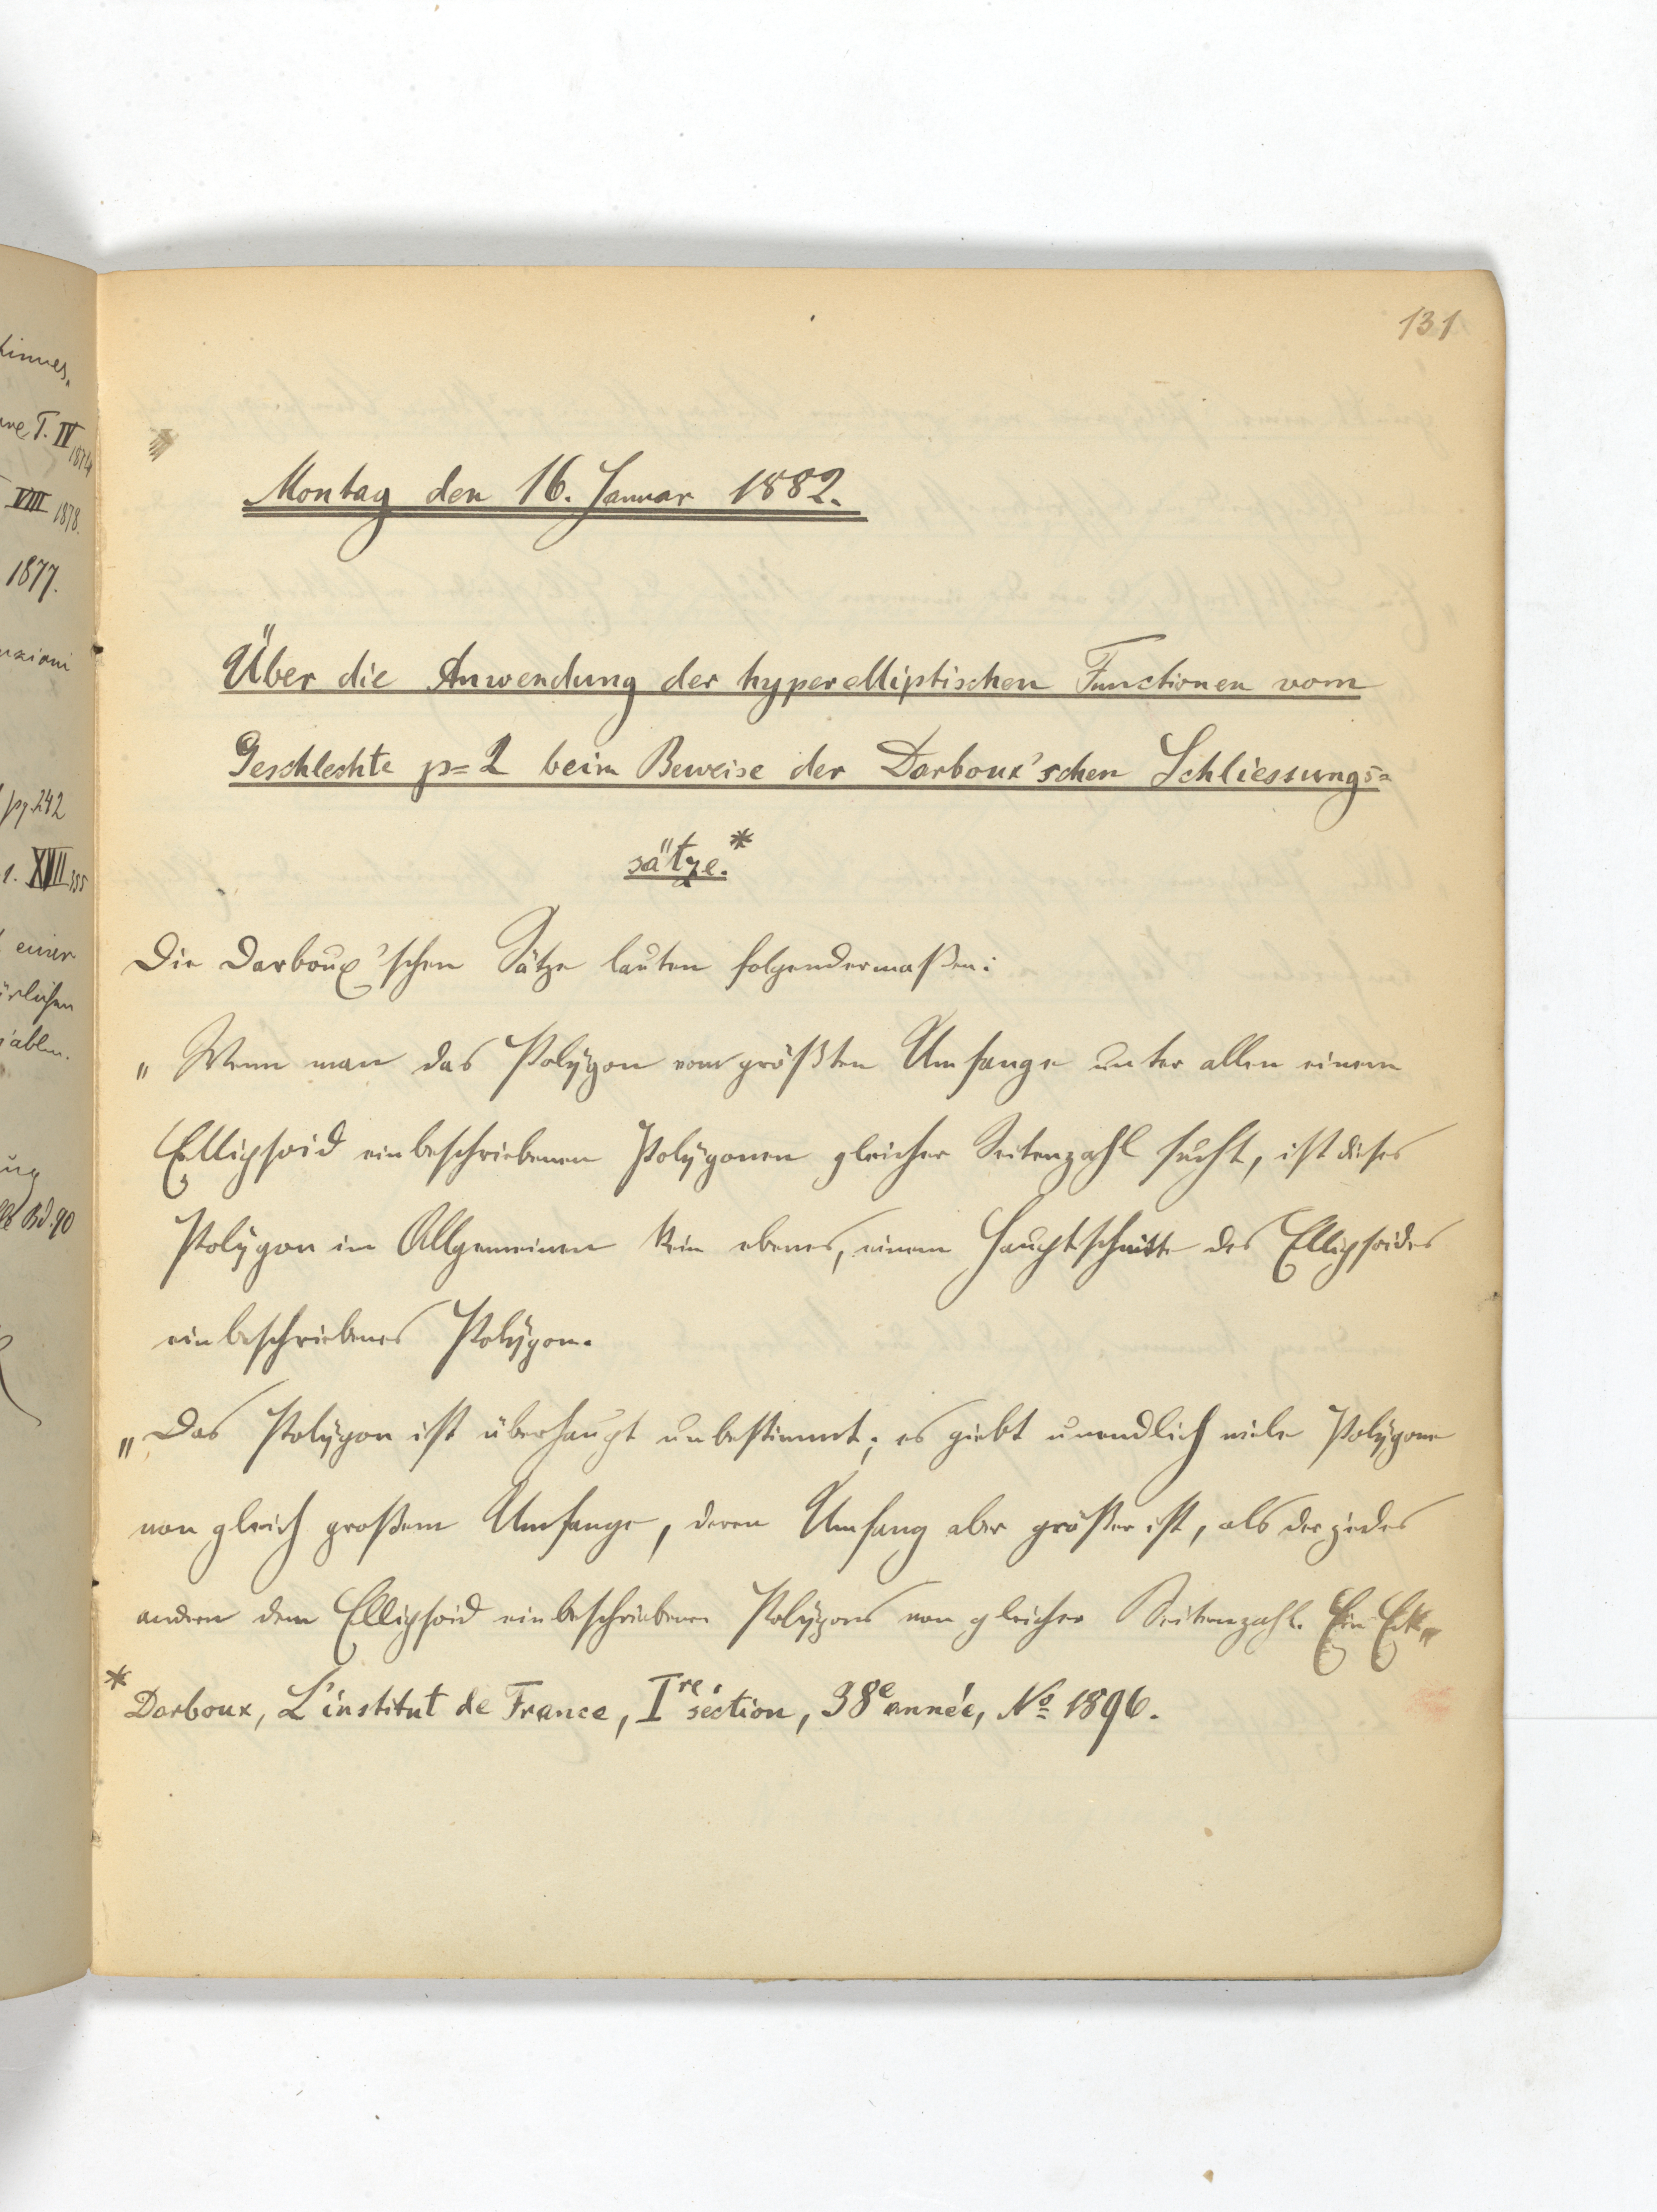 tinues.
T. IV 1874
VIII 1878.
1877.
pg. 242
1. XVII
einer
Bd. 90
131
Montag den 16. Januar 1882.
Über die Anwendung der hyperelliptischen Functionen vom
Geschlechte p=2 beim Beweise der Darboux'schen Schliessungs-
sätze.*
Die Darboux'schen Sätze lauten folgendermaßen:
„Wenn man das Polygon vom größten Umfange unter allen einem
Ellipsoid einbeschriebenen Polygonen gleicher Seitenzahl sucht, ist dieses
Polygon im Allgemeinen kein ebenes, einem Hauptschnitte des Ellipsoides
einbeschriebenes Polygon.
„Das Polygon ist überhaupt unbestimmt; es giebt unendlich viele Polygone
von gleich großem Umfange, deren Umfang aber größer ist, als der jedes
andern dem Ellipsoid einbeschriebenen Polygons von gleicher Seitenzahl. Ein Eck„
* Darboux, L'institut de France, Ire séction, 38e année, No 1896.